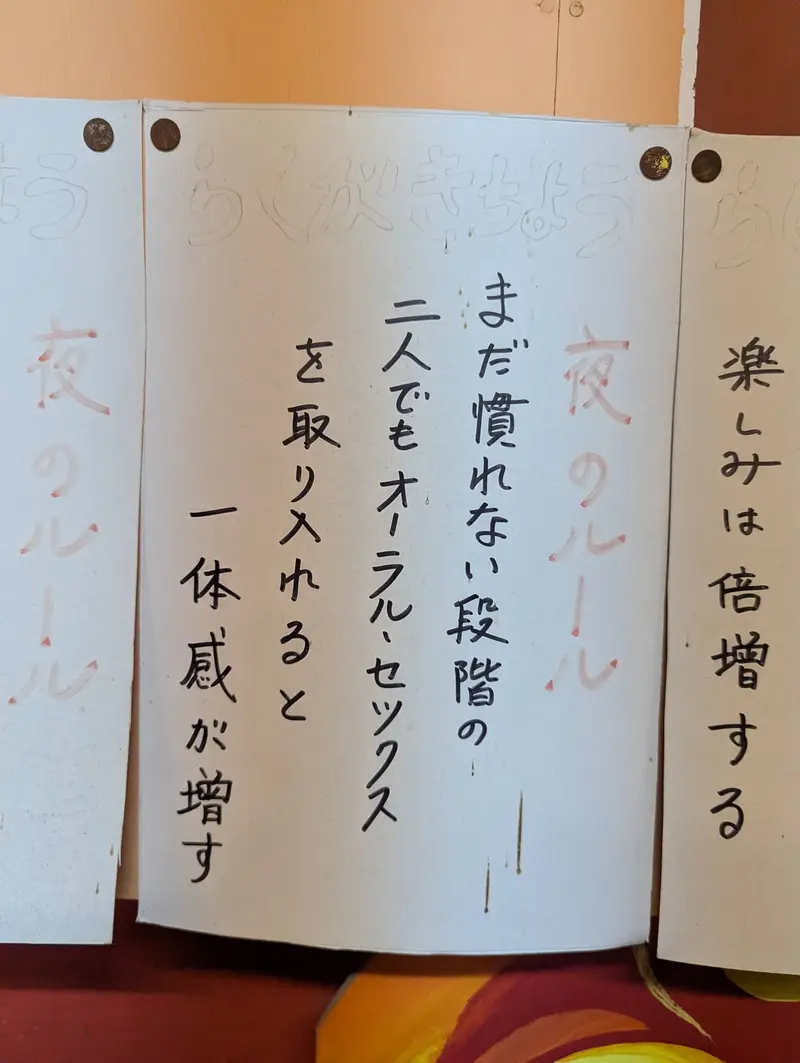 らくがきちょう
夜のルール
まだ慣れない段階の
二人でもオーラル・セックス
を取り入れると
一体感が増す
楽しみは倍増する
ょう
夜のルール